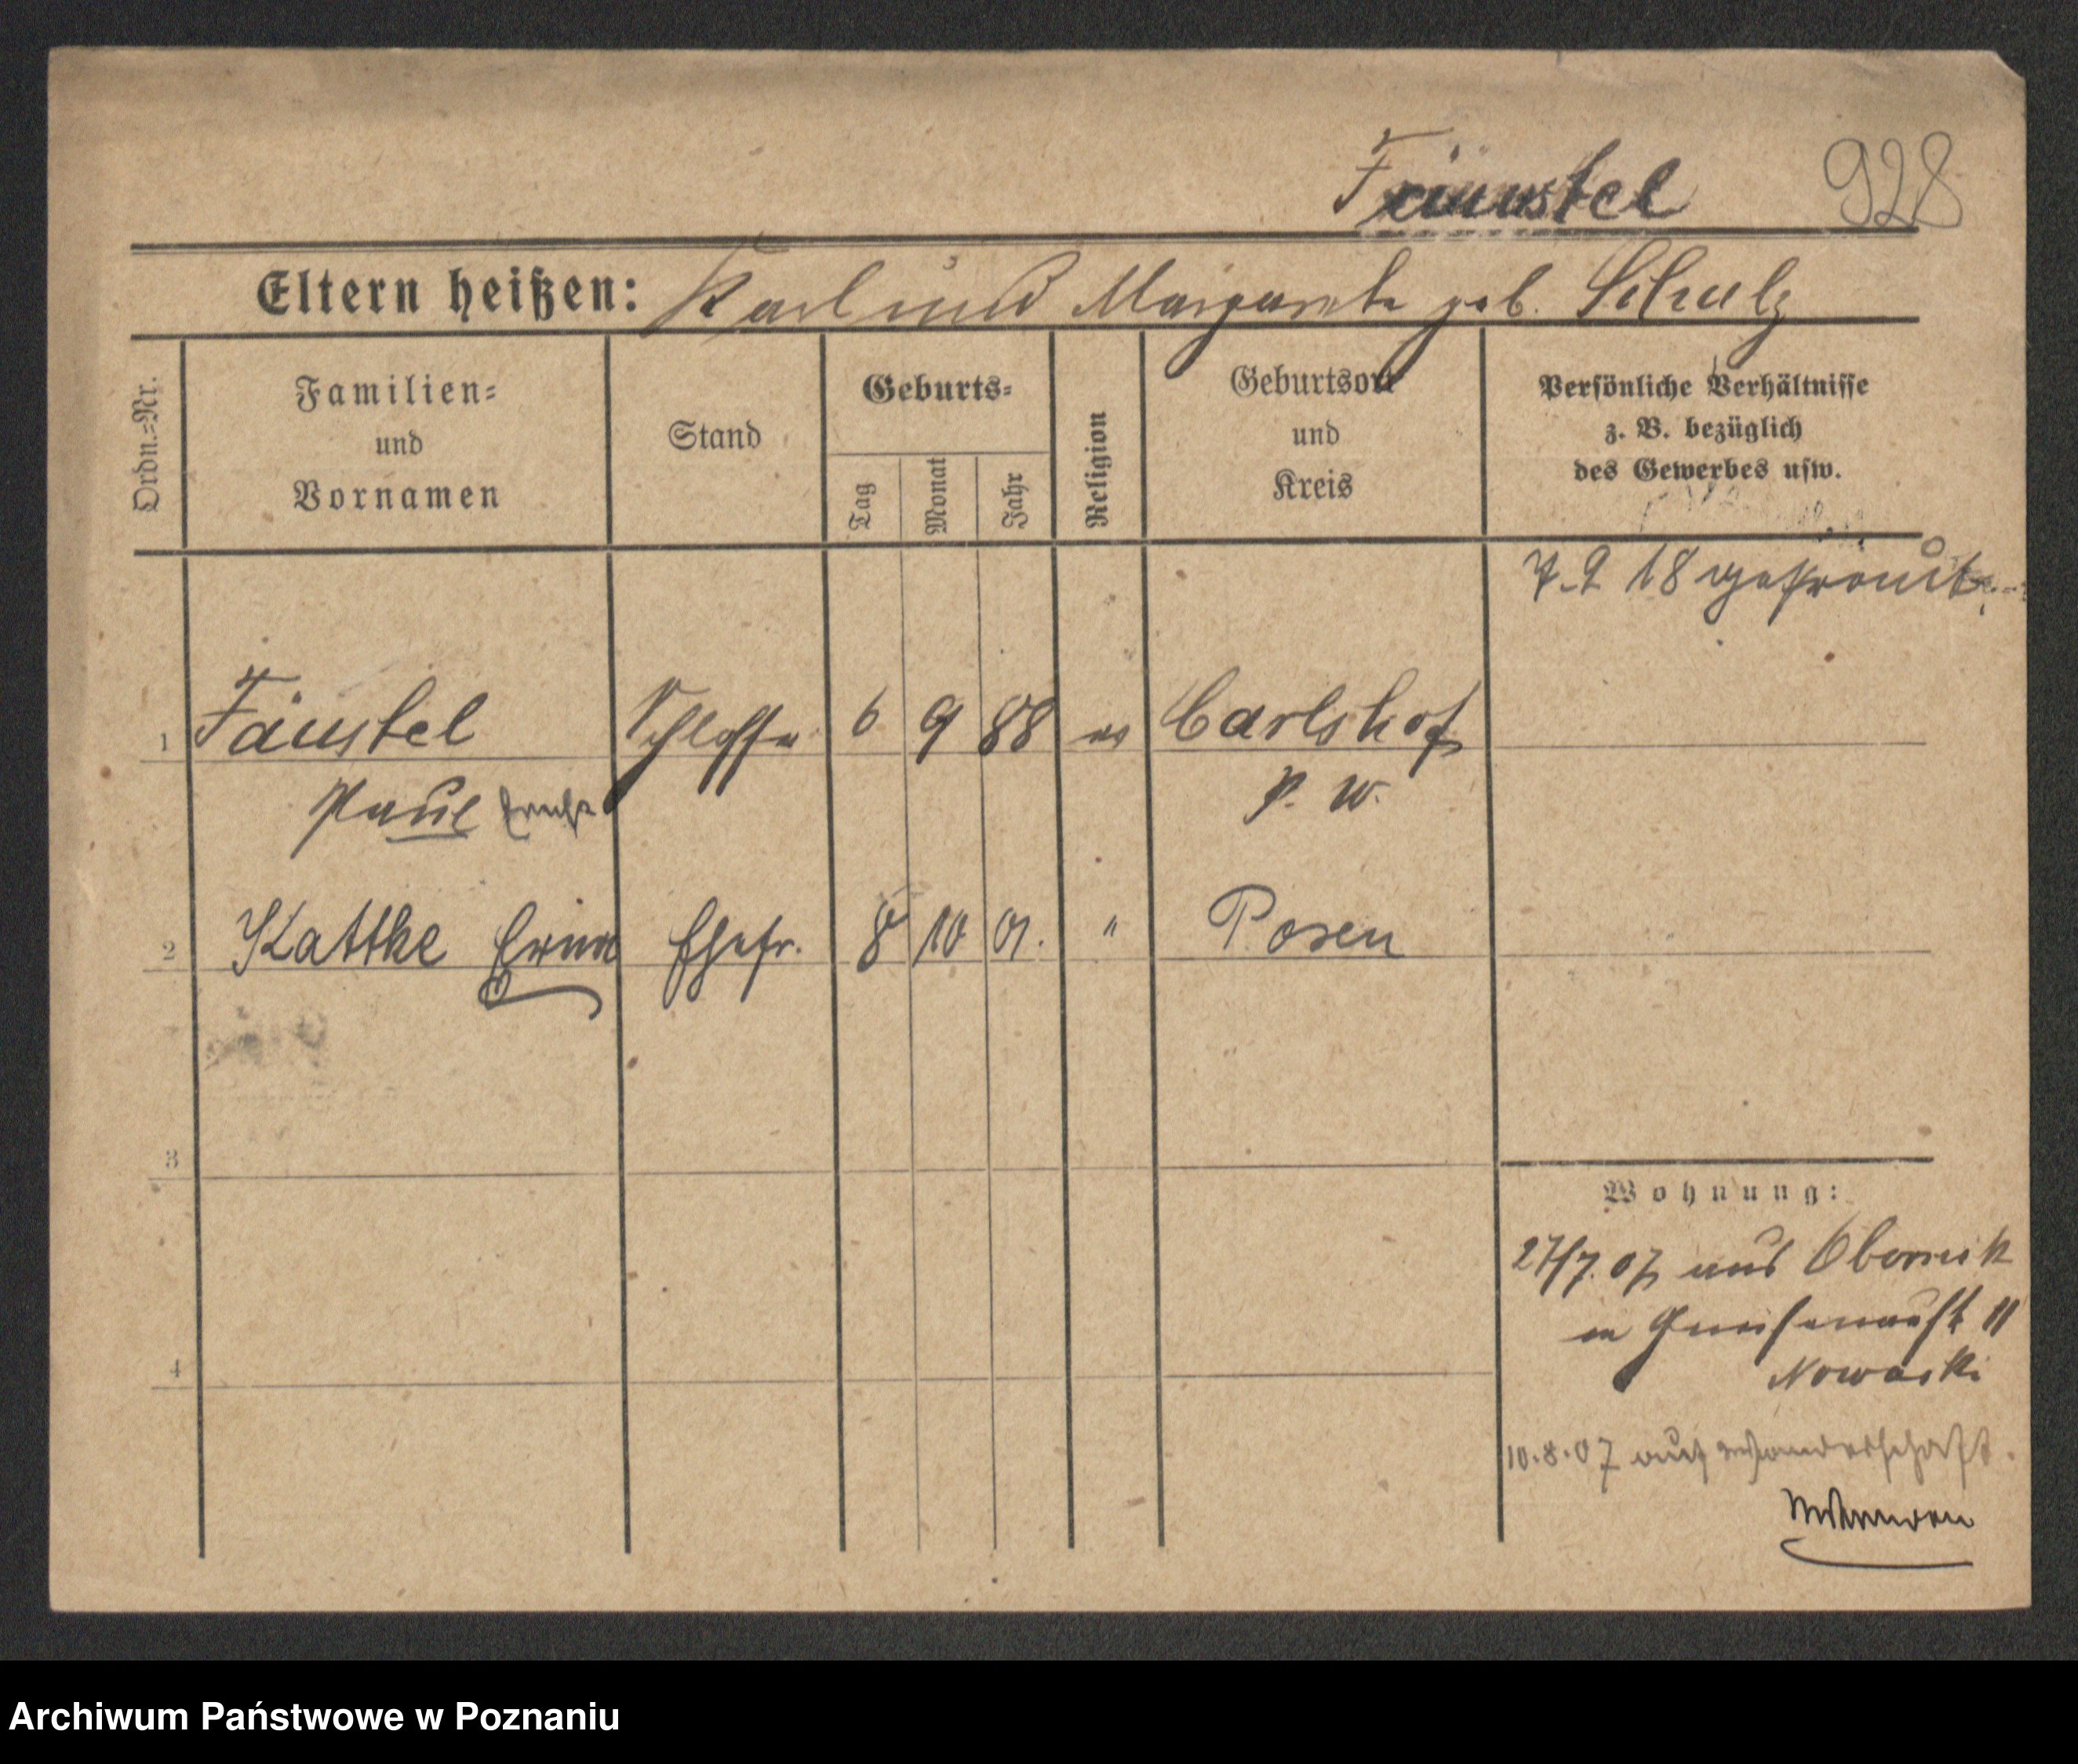 Fäustel 928
Eltern heißen: Karl und Margarete geb. Schulz
Ordn.=Nr.
Familien=
und
Vornamen
Stand
Geburts=
Tag
Monat
Jahr
Religion
Geburtsort
und
Kreis
Persönliche Verhältnisse
z. B. bezüglich
des Gewerbes usw.
7.2 18 getraut
1 Fäustel Schlosser 6 9 88 ev Carlshof
Paul P. W.
2 Kattke Erna Ehefr. 8 10 01. " Posen
3
Wohnung:
27/7.07 aus Obornik
Gneisenaustr 11
4
Nowacki
10.8.07 auf Wanderschaft.
Archiwum Państwowe w Poznaniu